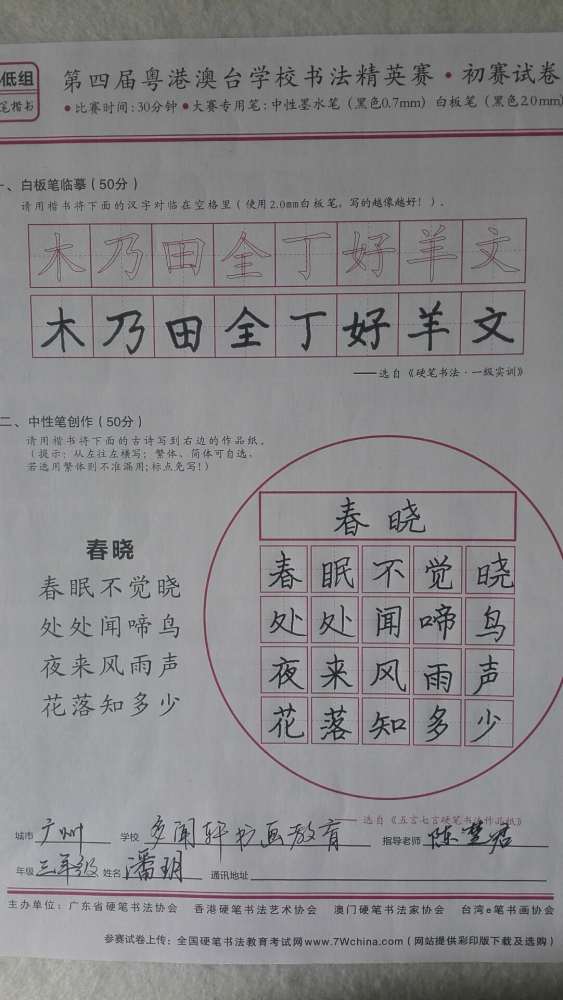 低组
笔楷书
第四届粤港澳台学校书法精英赛·初赛试卷
●比赛时间:30分钟●大赛专用笔:中性墨水笔(黑色0.7mm) 白板笔(黑色2.0mm)
一、白板笔临摹(50分)
请用楷书将下面的汉字对临在空格里(使用2.0mm白板笔,写的越像越好!)。
木乃田全丁好羊文
木乃田全丁好羊文
——选自《硬笔书法·一级实训》
二、中性笔创作(50分)
请用楷书将下面的古诗写到右边的作品纸。
(提示:从左往左横写;繁体、简体可自选,
若选用繁体则不准漏用;标点免写!)
春晓
春眠不觉晓
处处闻啼鸟
夜来风雨声
花落知多少
春晓
春眠不觉晓
处处闻啼鸟
夜来风雨声
花落知多少
选自《五言七言硬笔书法作品纸》
城市 广州 学校 多闻轩书画教育 指导老师 陈楚君
年级 三年级 姓名 潘玥 通讯地址
主办单位:广东省硬笔书法协会 香港硬笔书法艺术协会 澳门硬笔书法家协会 台湾e笔书画协会
参赛试卷上传:全国硬笔书法教育考试网www.7Wchina.com(网站提供彩印版下载及选购)